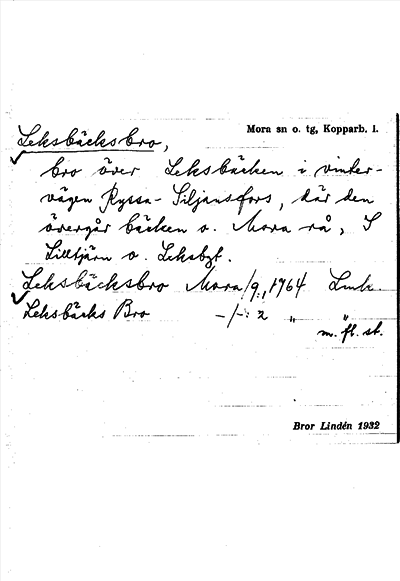 Mora sn o. tg, Kopparb. l.
Leksbäcksbro,
bro över Leksbäcken i vinter-
vägen Ryssa-Siljansfors, där den
övergår bäcken o. Mora rå, S
Lilltjärn o. Leksbgt.
Leksbäcksbro Mora/9, 1764 Lmk.
Leksbäcks Bro -/-: 2 " "
m. fl. st.
Bror Lindén 1932